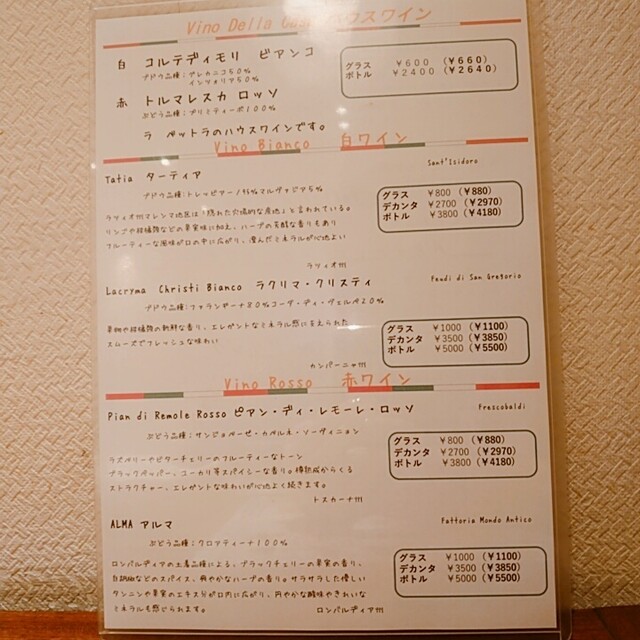 Vino Della Casa ハウスワイン
白 コルテディモリ ビアンコ
ブドウ品種:グレカニコ50%
インツォリア50%
グラス ￥600 (￥660)
ボトル ￥2400 (￥2640)
赤 トルマレスカ ロッソ
ぶどう品種:プリミティーボ100%
ラ ペットラのハウスワインです。
Vino Bianco 白ワイン
Tatia ターティア
Sant'Isidoro
ブドウ品種:トレッビアーノ95%マルヴァジア5%
グラス ￥800 (￥880)
デカンタ ￥2700 (￥2970)
ボトル ￥3800 (￥4180)
ラツィオ州マレンマ地区は「隠れた穴場的な産地」と言われている。
リンゴや柑橘類などの果実味に加え、ハーブの芳醇な香りもあり
フルーティーな風味が口の中に広がり、澄んだミネラルが心地よい
ラツィオ州
Lacryma Christi Bianco ラクリマ・クリスティ
Feudi di San Gregorio
ブドウ品種:ファランギーナ80%コーダ・ディ・ヴォルペ20%
グラス ￥1000 (￥1100)
デカンタ ￥3500 (￥3850)
ボトル ￥5000 (￥5500)
果物や柑橘類の新鮮な香り、エレガントなミネラル感に支えられた
スムーズでフレッシュな味わい
カンパーニャ州
Vino Rosso 赤ワイン
Pian di Remole Rosso ピアン・ディ・レモーレ・ロッソ
Frescobaldi
ぶどう品種:サンジョベーゼ・カベルネ・ソーヴィニョン
グラス ￥800 (￥880)
デカンタ ￥2700 (￥2970)
ボトル ￥3800 (￥4180)
ラズベリーやビターチェリーのフルーティーなトーン
ブラックペッパー、ユーカリ等スパイシーな香り。樽熟成からくる
ストラクチャー、エレガントな味わいが心地よく続きます。
トスカーナ州
ALMA アルマ
Fattoria Mondo Antico
ぶどう品種:クロアティーナ100%
グラス ￥1000 (￥1100)
デカンタ ￥3500 (￥3850)
ボトル ￥5000 (￥5500)
ロンバルディアの土着品種による、ブラックチェリーの果実の香り、
などのスパイス、爽やかなハーブの香り。サラサラした優しい
タンニンや果実のエキス分が口内に広がり、円やかな酸味やきれいな
ミネラルも感じられます。
ロンバルディア州